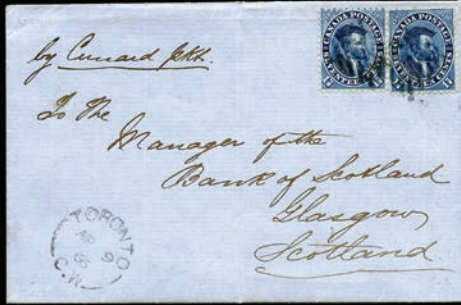 CANADA POSTAGE CANADA POSTAGE
by Cunard pkt.
To the
Manager of the
Bank of Scotland
Glasgow
Scotland
TORONTO
AP 9
C.W.